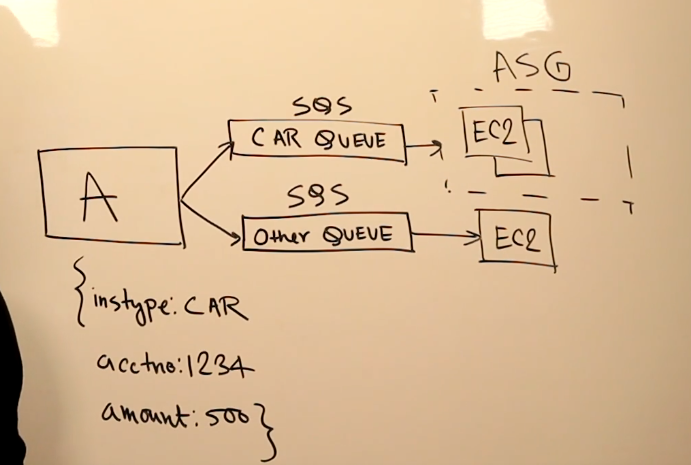 ASG
SQS
CAR QUEUE
EC2
A
SQS
Other QUEUE
EC2
{instype: CAR
acctno: 1234
amount: 500}